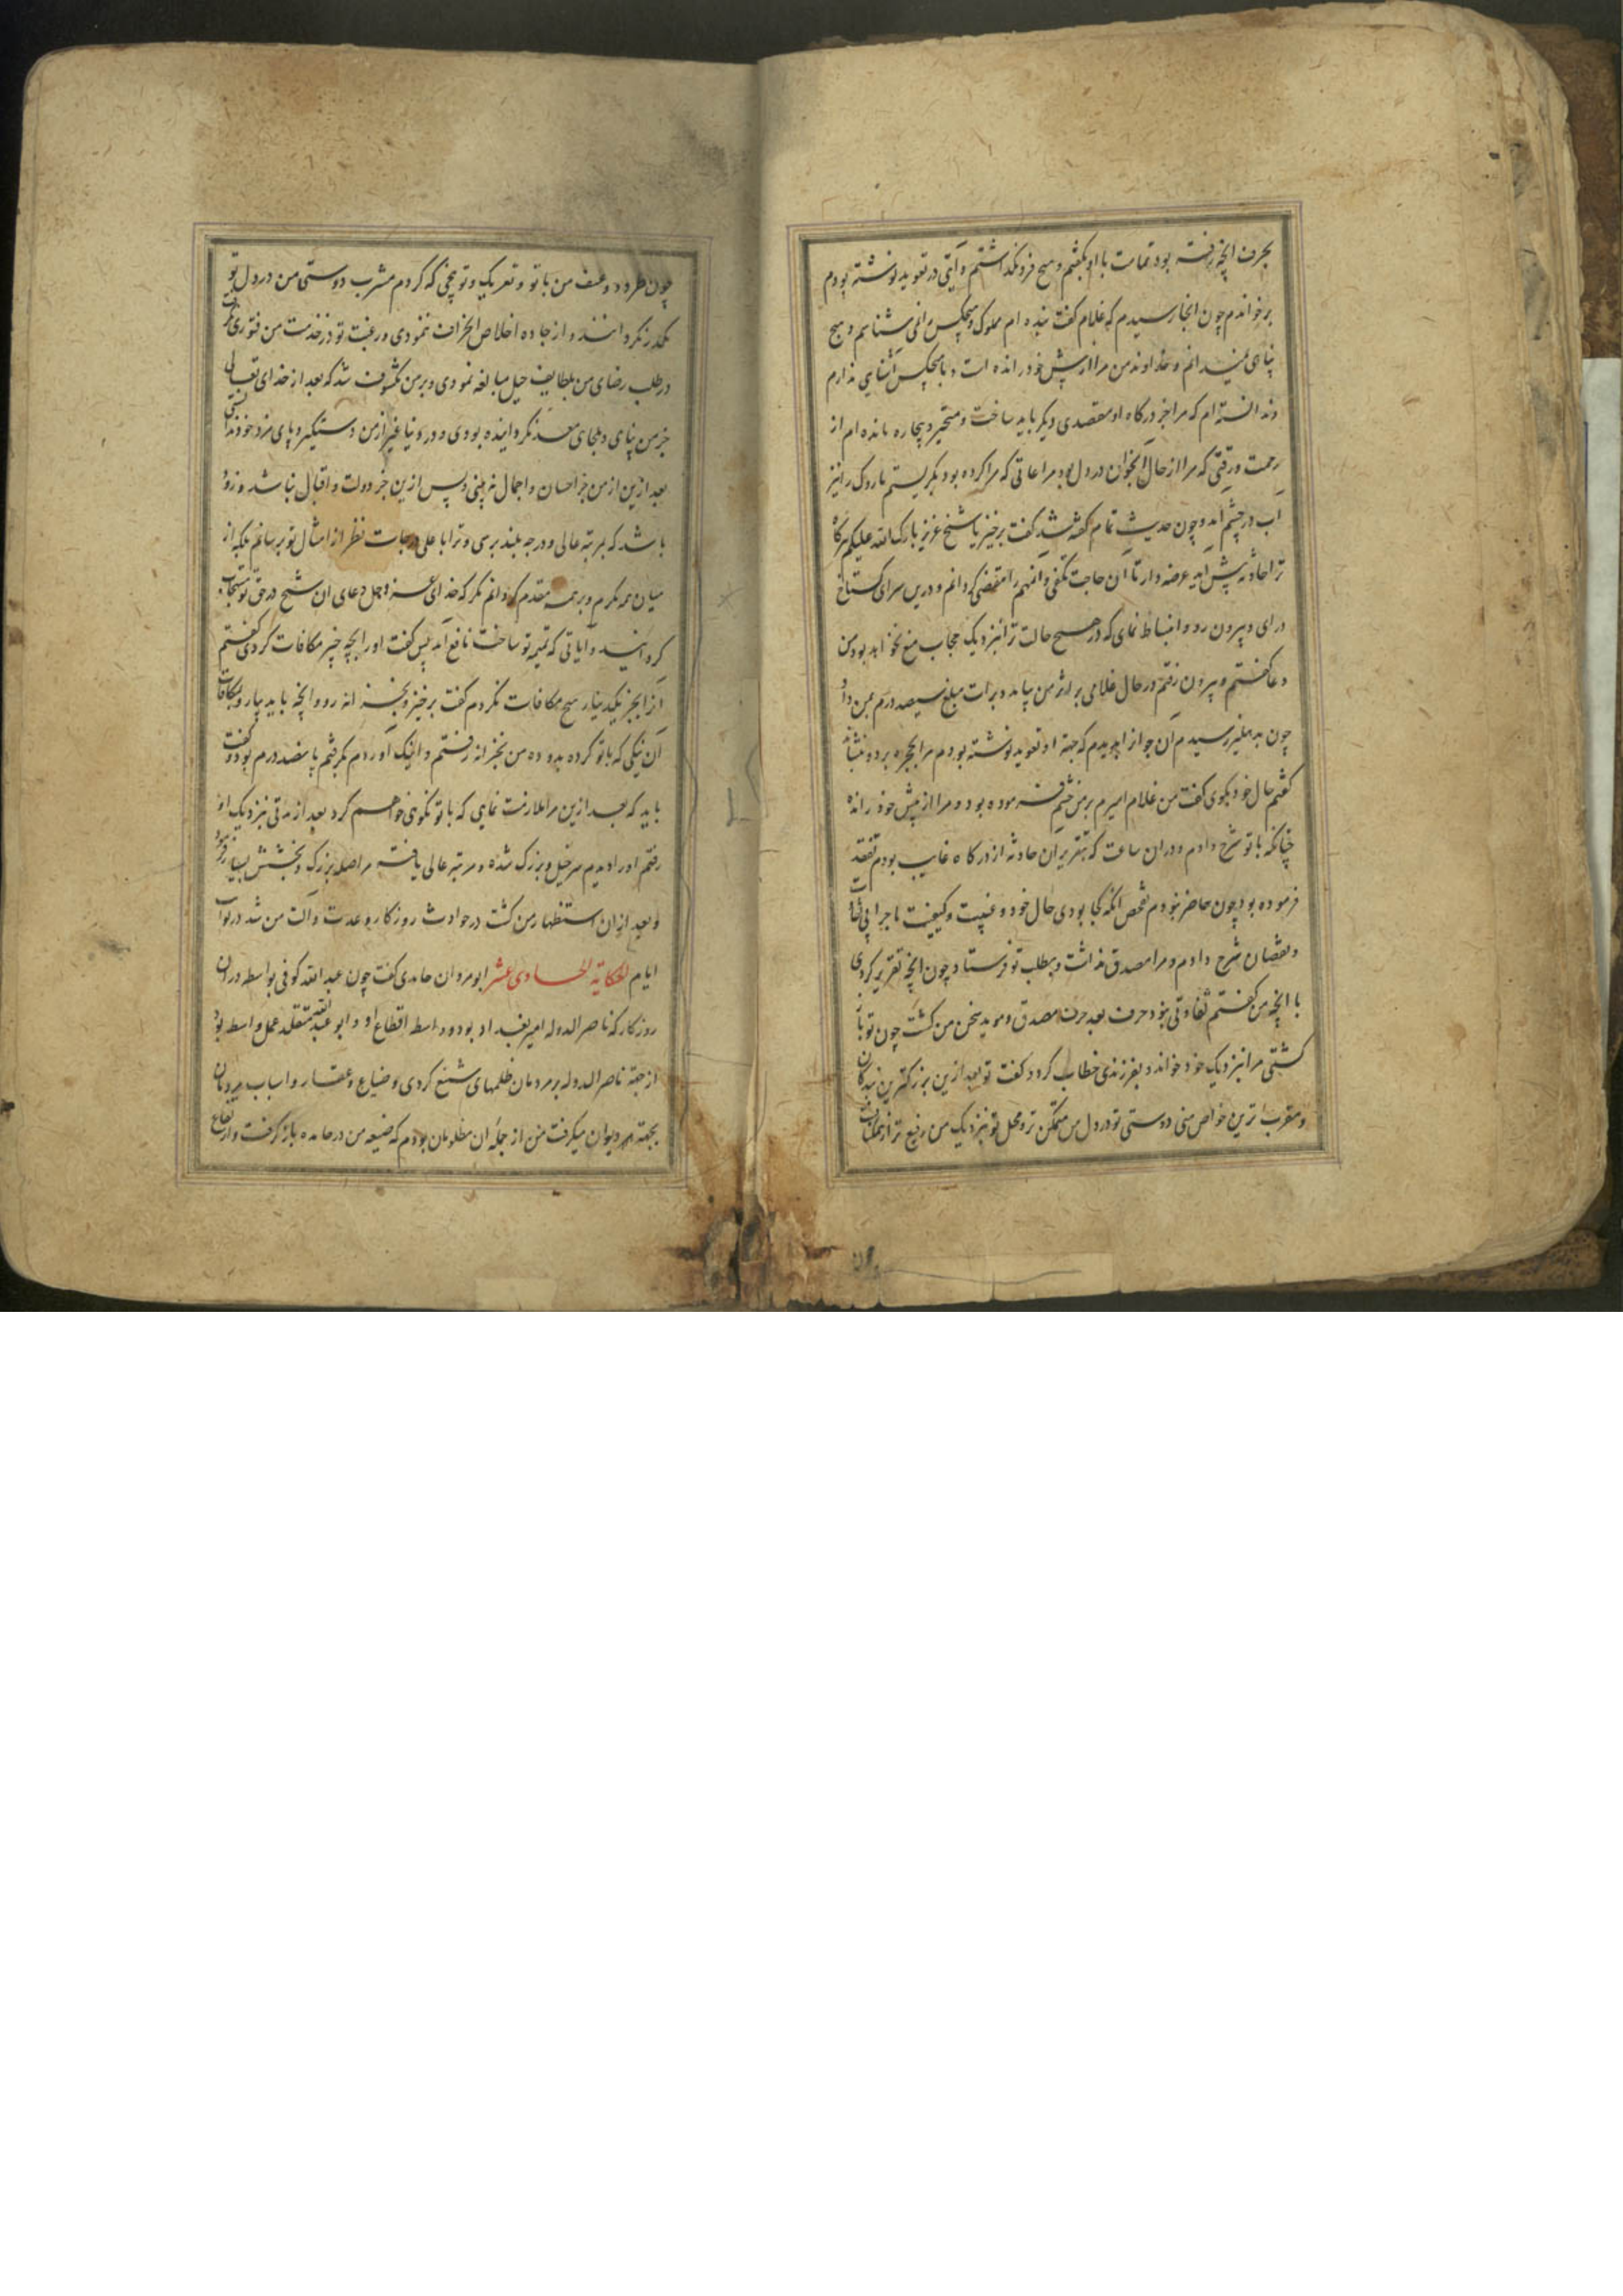 بحرف انچه رفته بود تمامت با او بگفتم و هیچ فرو نگذاشتم و آیتی در تعوید نوشته بودم
برخواندم چون انجا رسیدم که غلام گفت بنده ام مملوک و هیچکس را نمی شناسم و هیچ
پناهی نمیدانم و خداوند من مرا از پیش خود رانده است و با هیچکس آشنایی ندارم
و ندانسته ام که مرا جز درگاه او مقصدی دیگر باید ساخت و متحیر و بیچاره مانده ام از
رحمت و رقتی که مرا از حال آنجوان در دل بود مراعاتی که مرا کرده بود بگریستم ناروک را نیز
آب در چشم آمد و چون حدیث تمام گفته شد گفت برخیز یا شیخ عزیز بارک الله علیکم هرگاه
ترا حادثه پیش آید عرضه دار تا آن حاجت مکفی و انمهم را مقضی گردانم و درین سرای گستاخ
درای و بیرون رو و انبساط نمای که در هیچ حالت ترا نزدیک حجاب منع نخواهد بود من
دعا گفتم و بیرون رفتم در حال غلامی بر اثر من بیامد و برات مبلغ سیصد درم بمن داد
چون بدهلیز رسیدم آن جوان را بدیدم که جهة او تعوید نوشته بودم مرا بحجره برد و بنشاند
گفتم حال خود بگوی گفت من غلام امیرم بر من خشم فرموده بود و مرا از پیش خود رانده
چنانکه با تو شرح دادم و دران ساعت که بتقریر آن حادثه از درگاه غایب بودم تفقد
فرموده بود چون حاضر نبودم تفحص انکه کجا بودی حال خود و غیبت و کیفیت ماجرا بی
و نقصان شرح دادم و مرا مصدق نداشت و بطلب تو فرستاد چون انچه تقریر کردی
با انچه من گفتم تفاوتی نبود حرف بعد حرف مصدق و موید سخن من گشت چون تو باز
گشتی مرا نزدیک خود خواند و بفرزندی خطاب کرد و گفت تو بعد ازین بزرگترین بندگان
و مقرب ترین خواص منی دوستی تو در دل من متمکن تر و محل تو نزدیک من رفیع تر از
چون طرد و عنف من با تو و تعریک و توبیخی که کردم مشرب دوستی من در دل تو
مکدر نگردانند و از جاده اخلاص انحراف ننمودی و رغبت تو در خدمت من فتوری نگرفت
در طلب رضای من بلطایف حیل مبالغه نمودی و بر من مکشوف شد که بعد از خدای تعالی
جز من پناهی و ملجای معد نگردانیده بودی و در دنیا غیر از من دستگیر و پای مرد خود ندانستی
بعد ازین از من جز احسان و اجمال نه بینی و پس ازین جز دولت و اقبال نباشد و زود
باشد که بمرتبه عالی و درجه بلند برسی و ترا باعلی درجات نظر از امثال تو برسانم بلکه از
میان همه مکرم و بر همه مقدم گردانم مگر که خدای عز و جل دعای آن شیخ در حق تو مستجاب
گردانید و آیاتی که تمیمه تو ساخت نافع آمد پس گفت اورا بچه چیز مکافات کردی گفتم
از انجز یکدینار هیچ مکافات نکردم گفت برخیز و بخزانه رو و انچه باید بیار و مکافات
آن نیکی که با تو کرده بدو ده من بخزانه رفتم و اینک آوردم بگرفتم پانصد درم بود و گفت
باید که بعد ازین مرا ملازمت نمایی که با تو نیکویی خواهم کرد بعد از مدتی نزدیک او
رفتم اورا دیدم سرخیل و بزرگ شده و مرتبه عالی یافته مرا صله بزرگ و بخشش بسیار فرمود
و بعد ازان استظهار من گشت در حوادث روزگار و عدت و آلت من شد در نوایب
ایام الحکایة الحادی عشر ابو مروان حامدی گفت چون عبد الله کوفی بواسطه دران
روزگار که ناصر الدوله امیر بغداد بود و واسط اقطاع او و ابو عبد الله متقلد عمل واسط بود
از جهة ناصر الدوله بر مردمان ظلمهای شنیع کردی و ضیاع و عقار و اسباب مردمان
بجهته دیوان میگرفت من از جمله آن مظلومان بودم که ضیعه من در حامده باز گرفت و ارتفاع